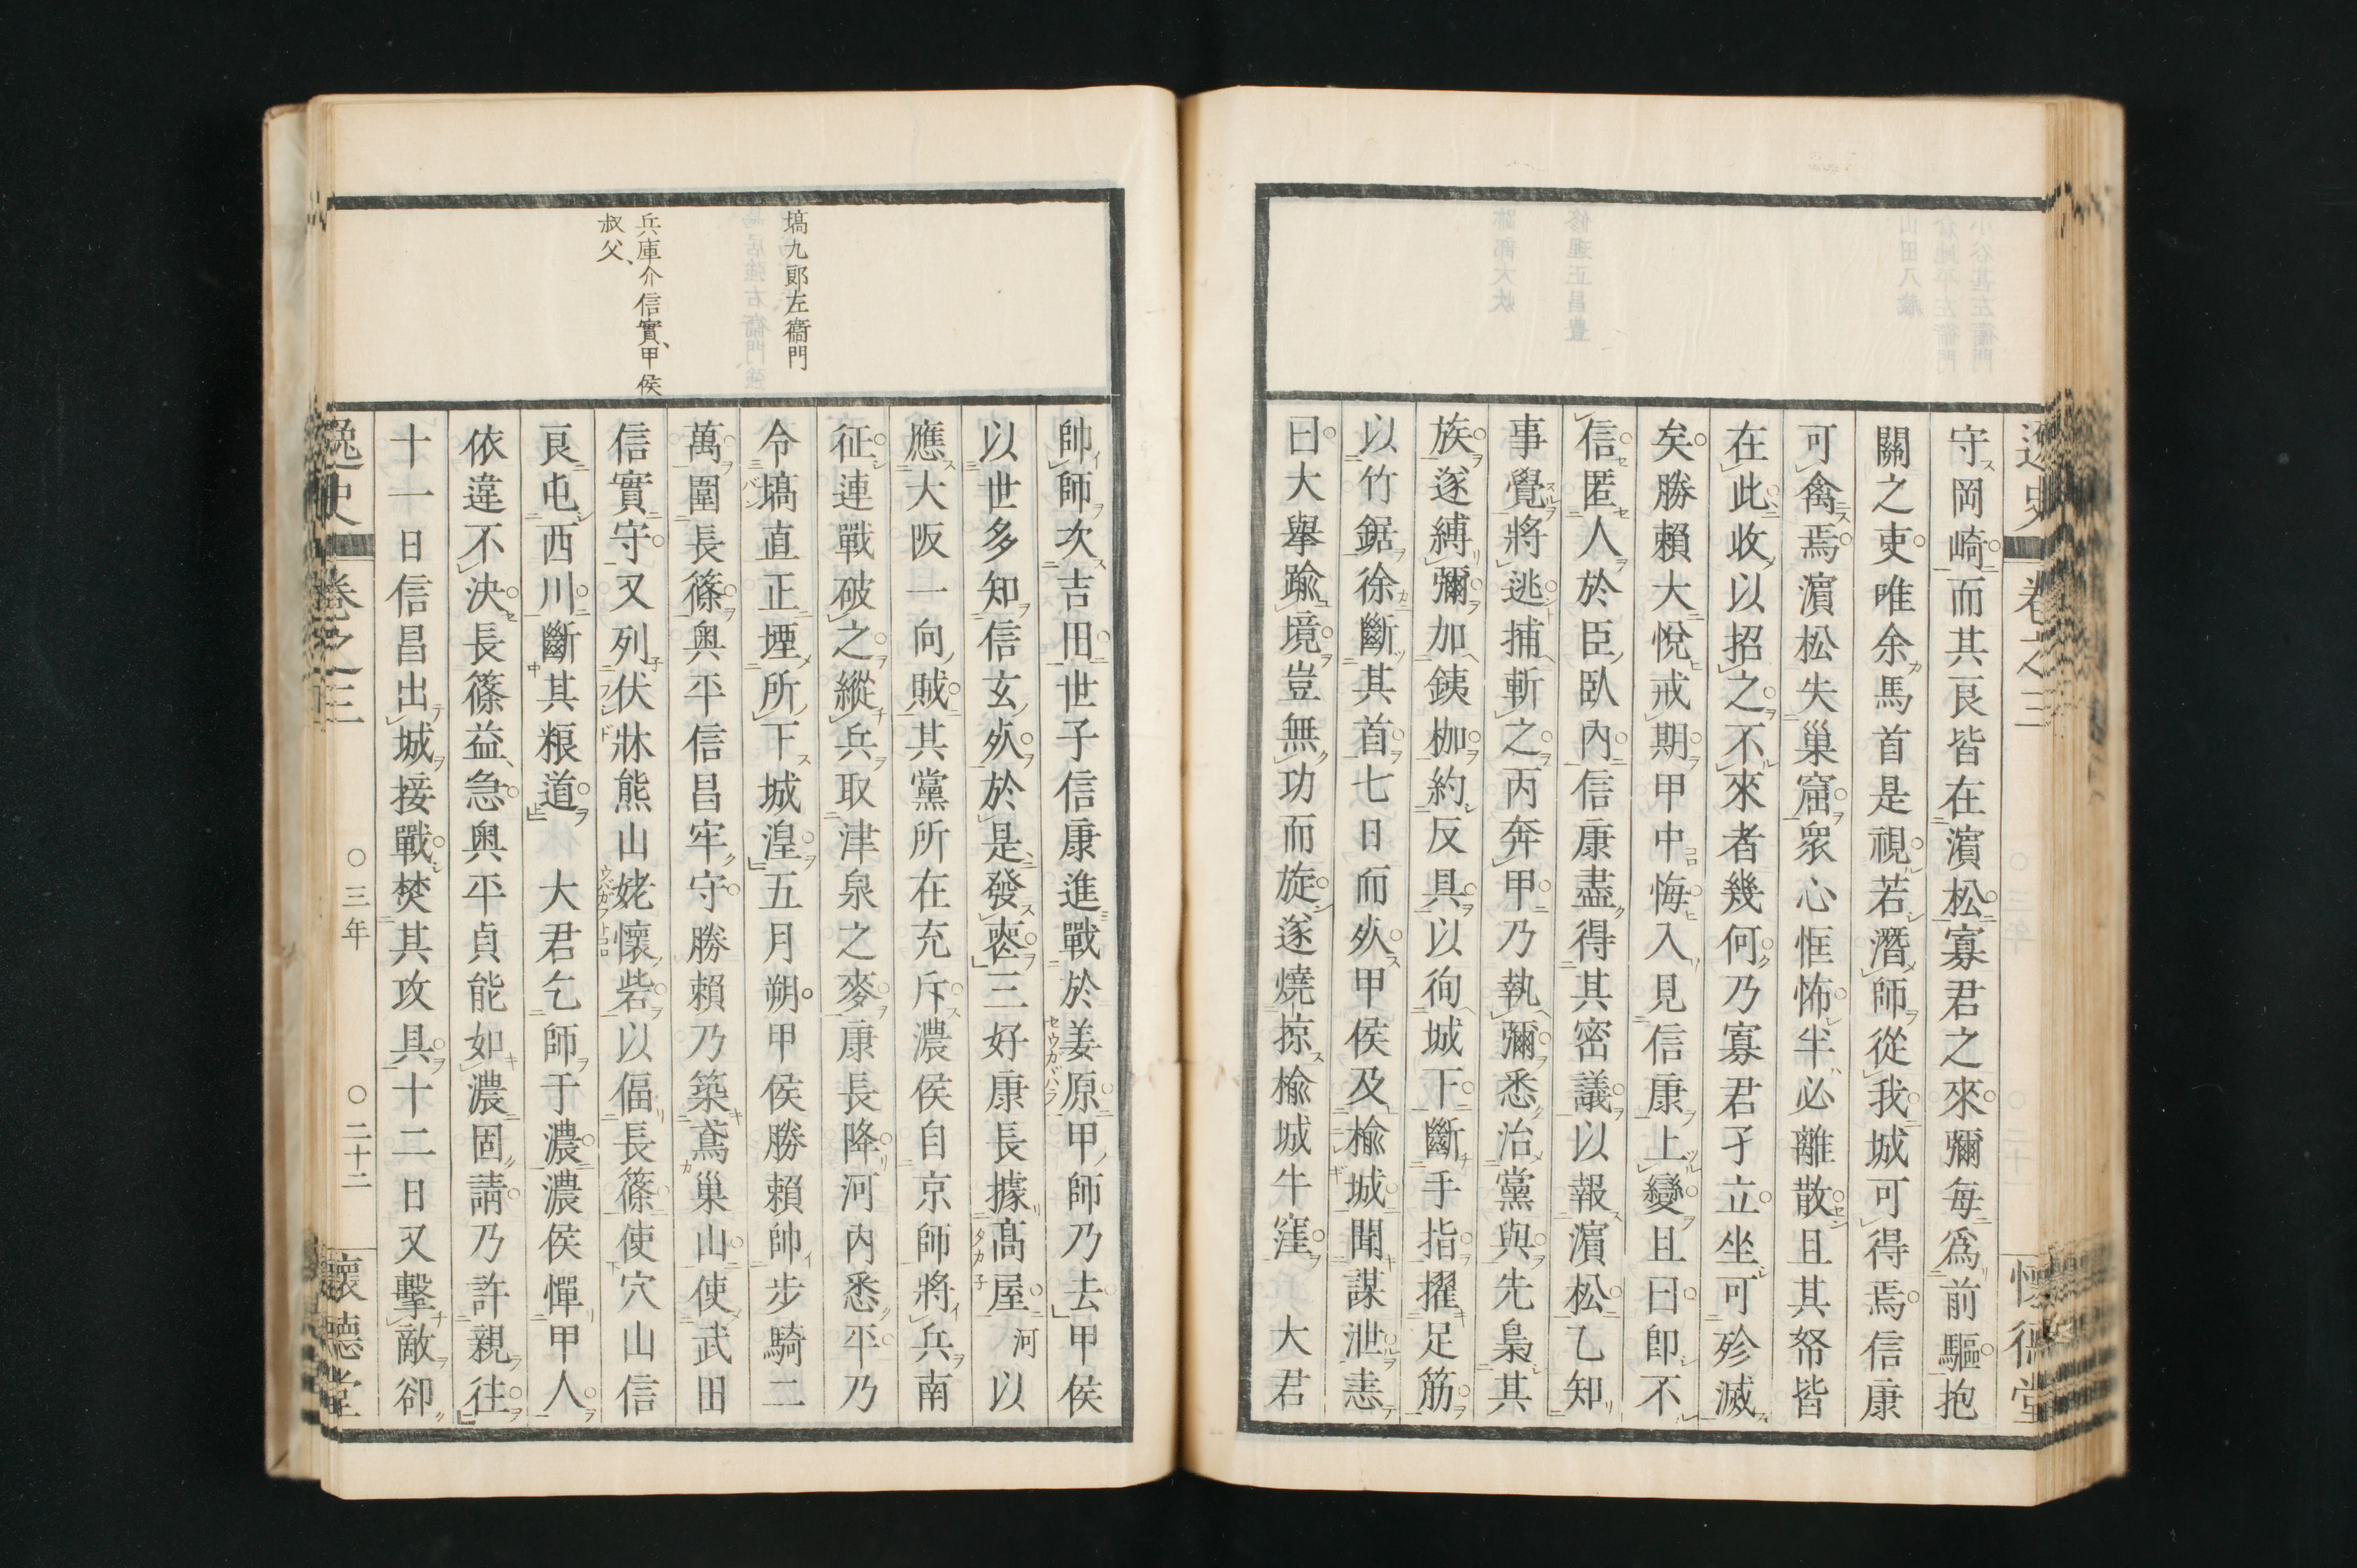 逸史 卷之三 懷德堂
守岡崎而其良皆在濵松寡君之來彌每爲前驅抱
關之吏唯余馬首是視若潛師從我城可得焉信康
可禽焉濵松失巢窟衆心恇怖半必離散且其帑皆
在此收以招之不來者幾何乃寡君孑立坐可殄滅
矣勝賴大悅戒期甲中悔入見信康上變且曰卽不
信匿人於臣臥內信康盡得其密議以報濵松乙知
事覺將逃捕斬之丙奔甲乃執彌悉治黨與先梟其
族遂縛彌加銕枷約反具以徇城下斷手指擢足筋
以竹鋸徐斷其首七日而死甲侯及楡城聞謀泄恚
曰大舉踰境豈無功而旋遂燒掠楡城牛窪 大君
塙九郞左衞門
兵庫介信實、甲侯
叔父、
帥師次吉田世子信康進戰於姜原甲師乃去甲侯
セウガバラ
以世多知信玄死於是發喪三好康長據高屋河以
タカ子
應大阪一向賊其黨所在充斥濃侯自京師將兵南
征連戰破之縱兵取津泉之麥康長降河內悉平乃
令塙直正堙所下城湟五月朔甲侯勝賴帥步騎二
バン
萬圍長篠奧平信昌牢守勝賴乃築鳶巢山使武田
信實守又列伏牀熊山姥懷砦以偪長篠使穴山信
フシド ウバガフトコロ
良屯西川斷其粮道 大君乞師于濃濃侯憚甲人
依違不決長篠益急奧平貞能如濃固請乃許親往
十一日信昌出城接戰焚其攻具十二日又擊敵卻
逸史 卷之三 〇三年 〇二十二 懷德堂